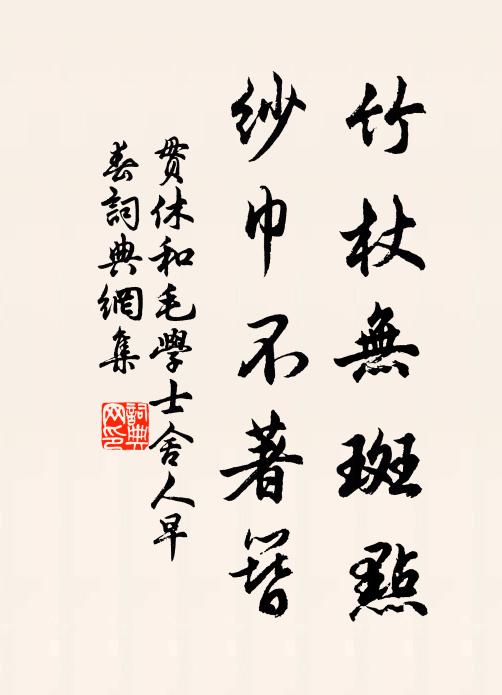 竹杖無斑點
紗巾不著簪
貫休和毛學士舍人早
春詞典網集
詞典
网印